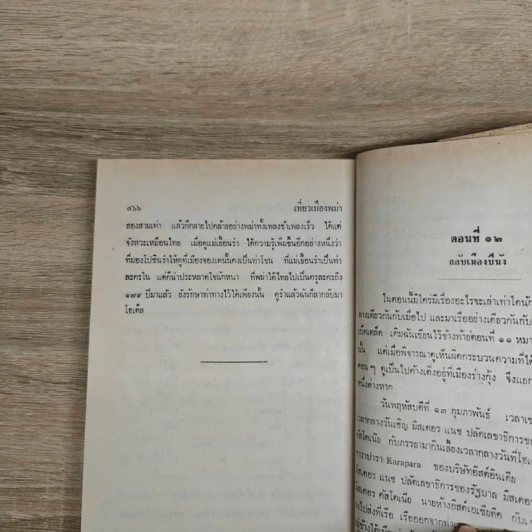 ๔๖๖ เที่ยวเมืองพม่า
สองสามเท่า แล้วก็กลายไปคล้ายอย่างพม่าทั้งเพลงช้าเพลงเร็ว ได้แต่
จังหวะเหมือนไทย เมื่อดูแม่เอื้อนรำ ได้ความรู้เพิ่มขึ้นอีกอย่างหนึ่งว่า
ที่มองโปซินรำให้ดูที่เมืองของเคนนั้นคงเป็นท่าโขน ที่แม่เอื้อนรำเป็นท่า
ละครใน แต่ก็น่าประหลาดใจนักหนา ที่พม่าได้ไทยไปเป็นครูละครถึง
๑๗๙ ปีมาแล้ว ยังรักษาท่าทางไว้ได้เพียงนั้น ดูรำแล้วฉันก็ลากลับมา
โฮเต็ล
ตอนที่ ๑๒
กลับเมืองปีนัง
ในตอนนี้มีใครมีเรื่องอะไรจะเล่าเท่าใดนัก
ทางเดียวกันกับเมื่อไป และมาเรืออย่างเดียวกันกับ
เบ็ดเตล็ด เดิมฉันเขียนไว้ข้างท้ายตอนที่ ๑๑ หมา
นั้น แต่เมื่อพิจารณาดูเห็นผิดกระบวนความที่ได้
ตอน ๆ ดูเป็นไปค้างเติ่งอยู่ที่เมืองร่างกุ้ง จึงแยก
หนึ่งต่างหาก
วันพฤหัสบดีที่ ๑๓ กุมภาพันธ์ เวลาเช
เวลากลางวันเชิญ มิสเตอร แนช ปลัดเลขาธิการขอ
คัลโดเนีย กับภรรยามากินเลี้ยงเวลากลางวันที่โฮเต
Karapara ของบริษัทอิสต์อินเดีย
มิสเตอร แนช ปลัดเลขาธิการของรัฐบาล มิสเตอร
มิสเตอร คัลโดเนีย นายห้างอิสต์เอเชียติค กับ
ไปส่งที่เรือ เรือออกจากท่า